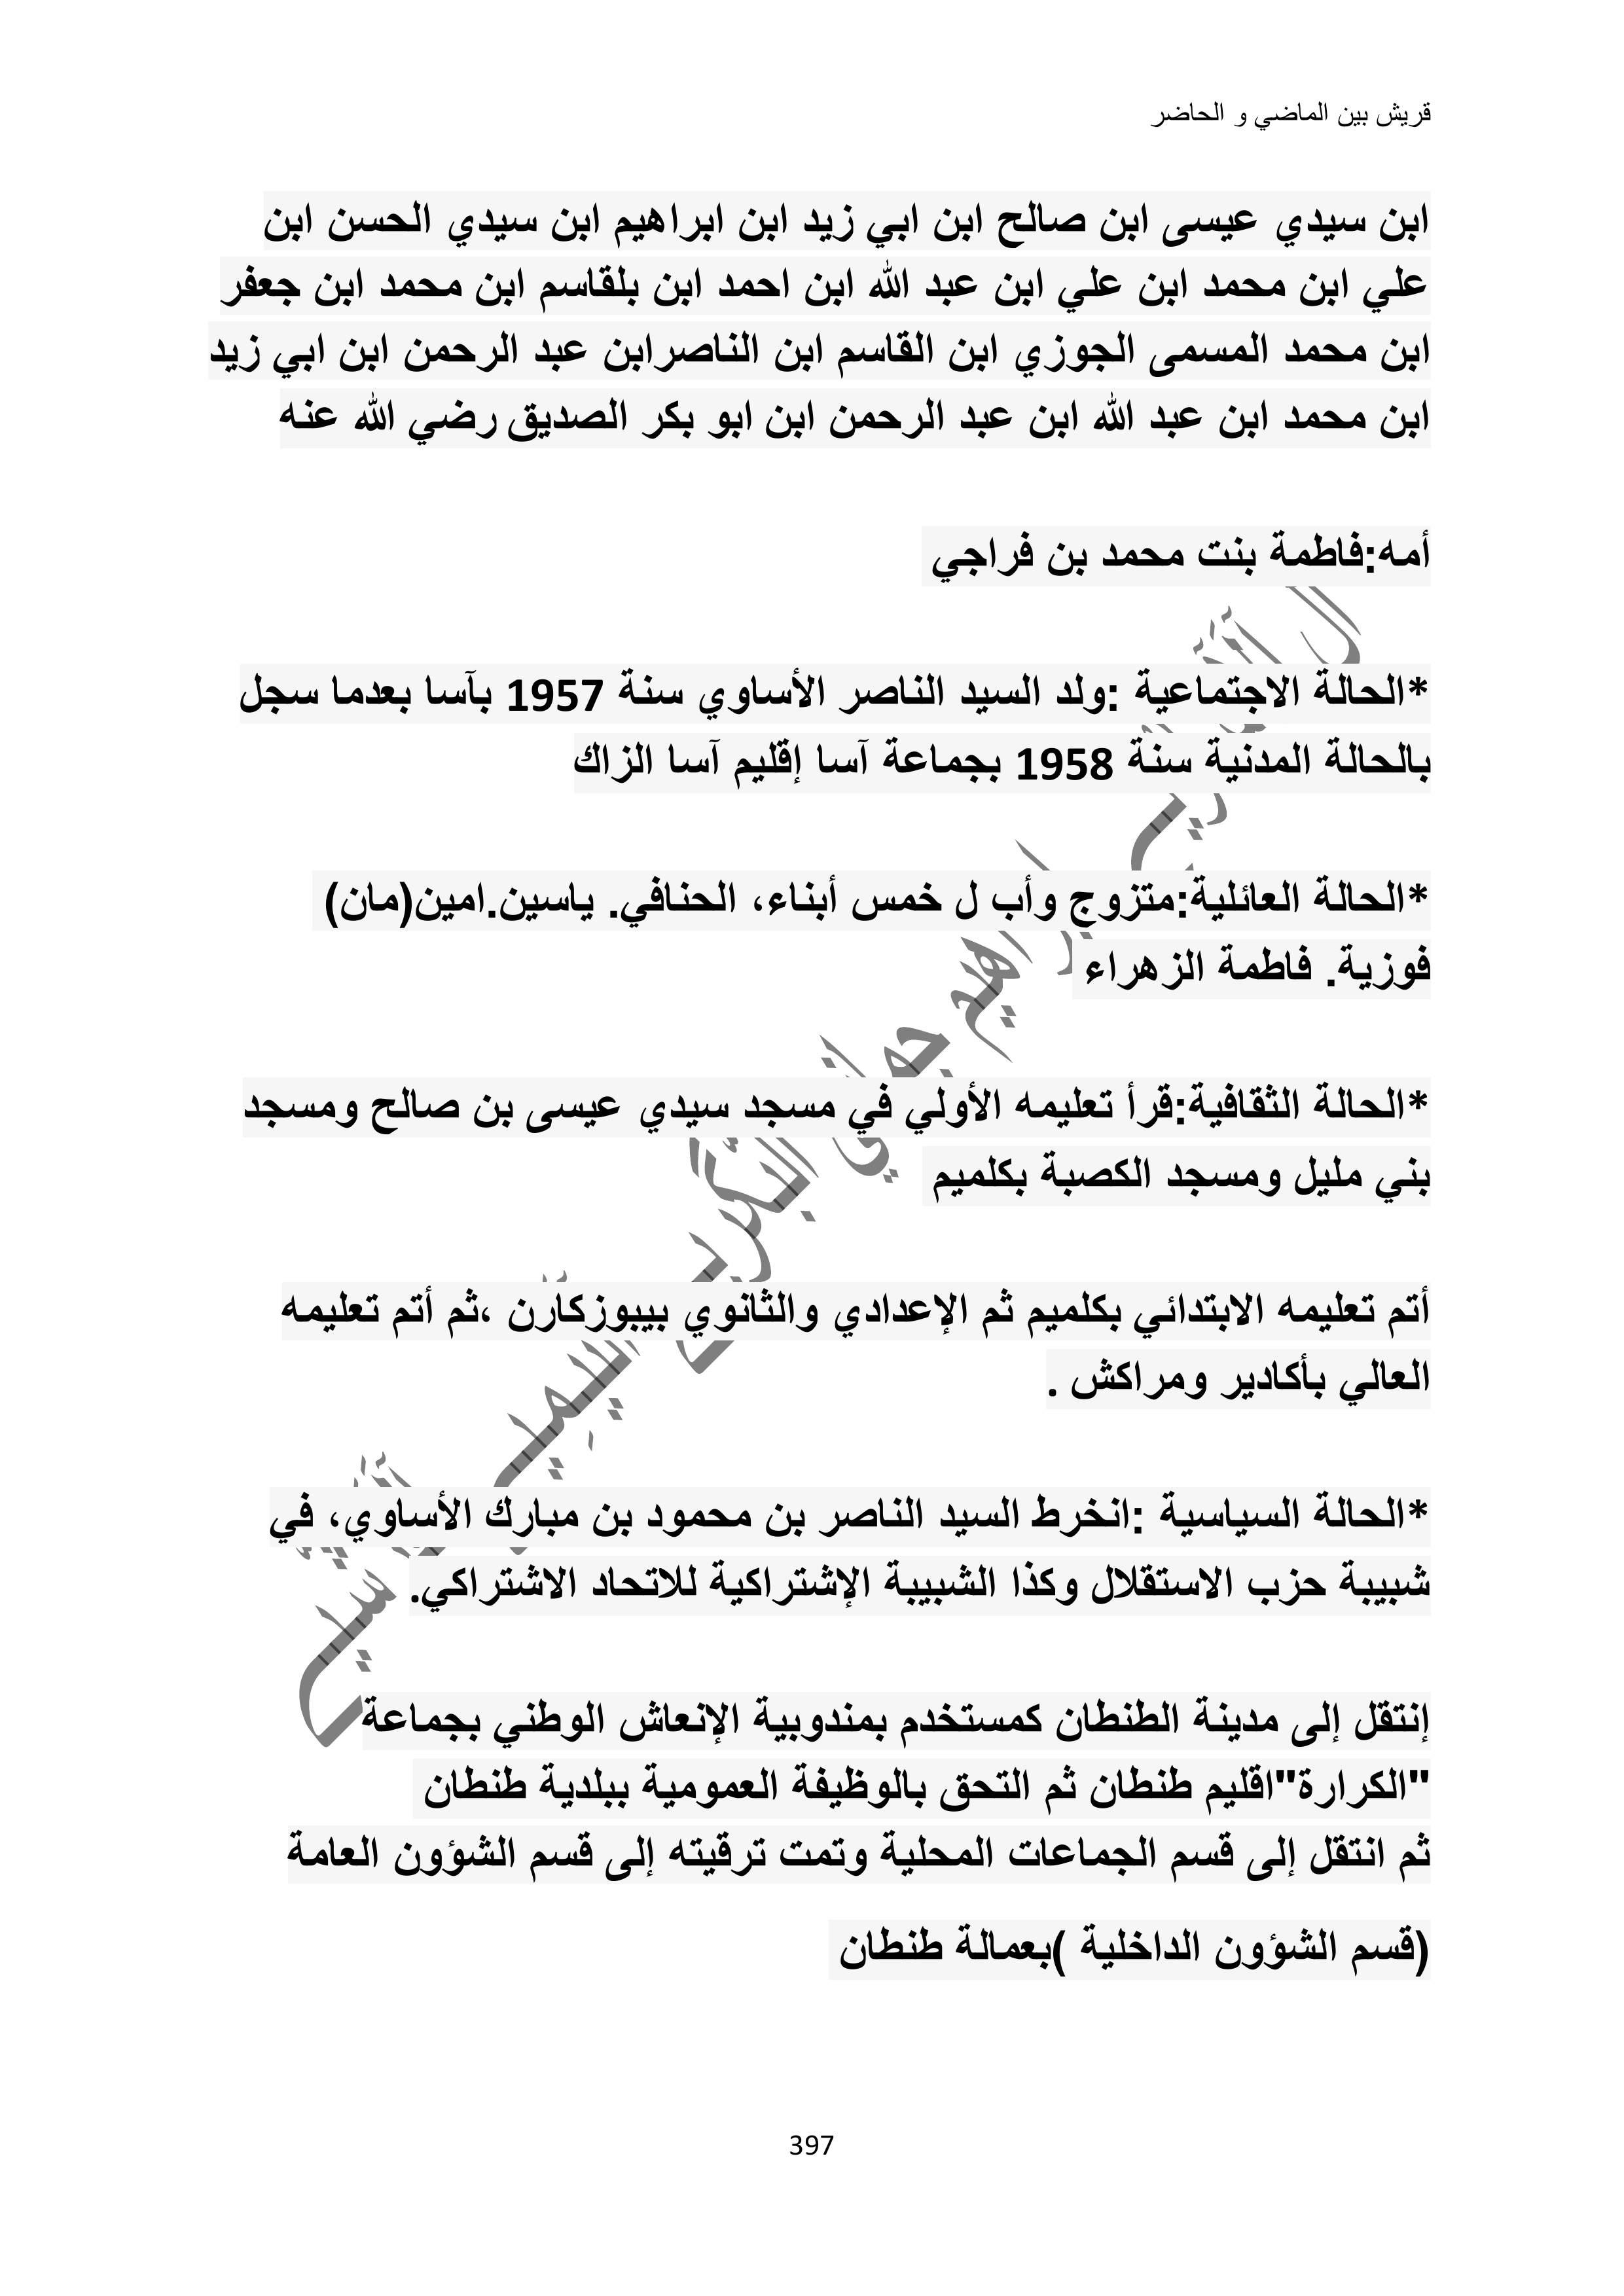 قريش بين الماضي و الحاضر
ابن سيدي عيسى ابن صالح ابن ابي زيد ابن ابراهيم ابن سيدي الحسن ابن
علي ابن محمد ابن علي ابن عبد الله ابن احمد ابن بلقاسم ابن محمد ابن جعفر
ابن محمد المسمى الجوزي ابن القاسم ابن الناصرابن عبد الرحمن ابن ابي زيد
ابن محمد ابن عبد الله ابن عبد الرحمن ابن ابو بكر الصديق رضي الله عنه
أمه:فاطمة بنت محمد بن فراجي
*الحالة الاجتماعية :ولد السيد الناصر الأساوي سنة 1957 بآسا بعدما سجل
بالحالة المدنية سنة 1958 بجماعة آسا إقليم آسا الزاك
*الحالة العائلية:متزوج وأب ل خمس أبناء، الحنافي. ياسين.امين(مان)
فوزية. فاطمة الزهراء
*الحالة الثقافية:قرأ تعليمه الأولي في مسجد سيدي عيسى بن صالح ومسجد
بني مليل ومسجد الكصبة بكلميم
أتم تعليمه الابتدائي بكلميم ثم الإعدادي والثانوي بيبوزكارن ،ثم أتم تعليمه
العالي بأكادير ومراكش .
*الحالة السياسية :انخرط السيد الناصر بن محمود بن مبارك الأساوي، في
شبيبة حزب الاستقلال وكذا الشبيبة الإشتراكية للاتحاد الاشتراكي.
إنتقل إلى مدينة الطنطان كمستخدم بمندوبية الإنعاش الوطني بجماعة
"الكرارة"اقليم طنطان ثم التحق بالوظيفة العمومية ببلدية طنطان
ثم انتقل إلى قسم الجماعات المحلية وتمت ترقيته إلى قسم الشؤون العامة
(قسم الشؤون الداخلية )بعمالة طنطان
397